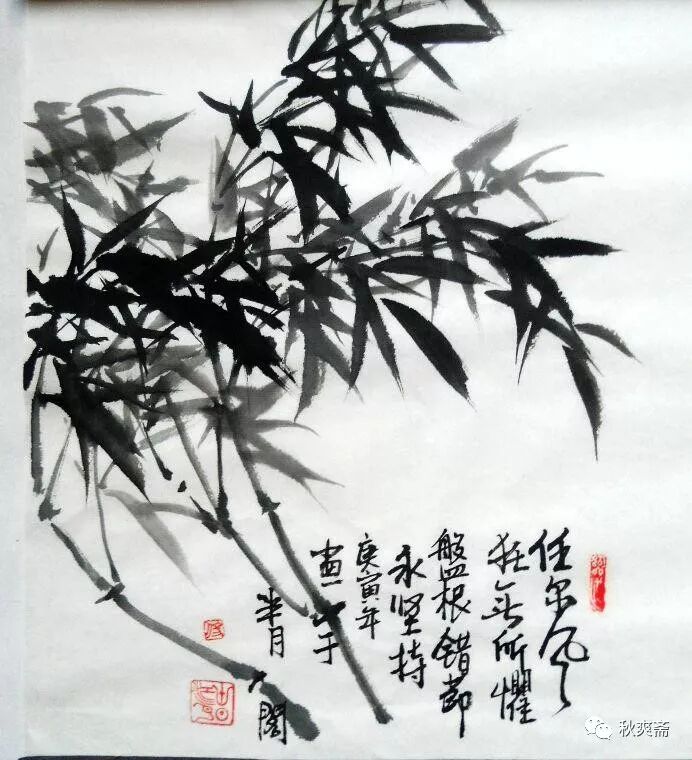 任尔风
狂无所懼
盤根错節
永坚持
庚寅年
画于
半月阁
秋爽斋